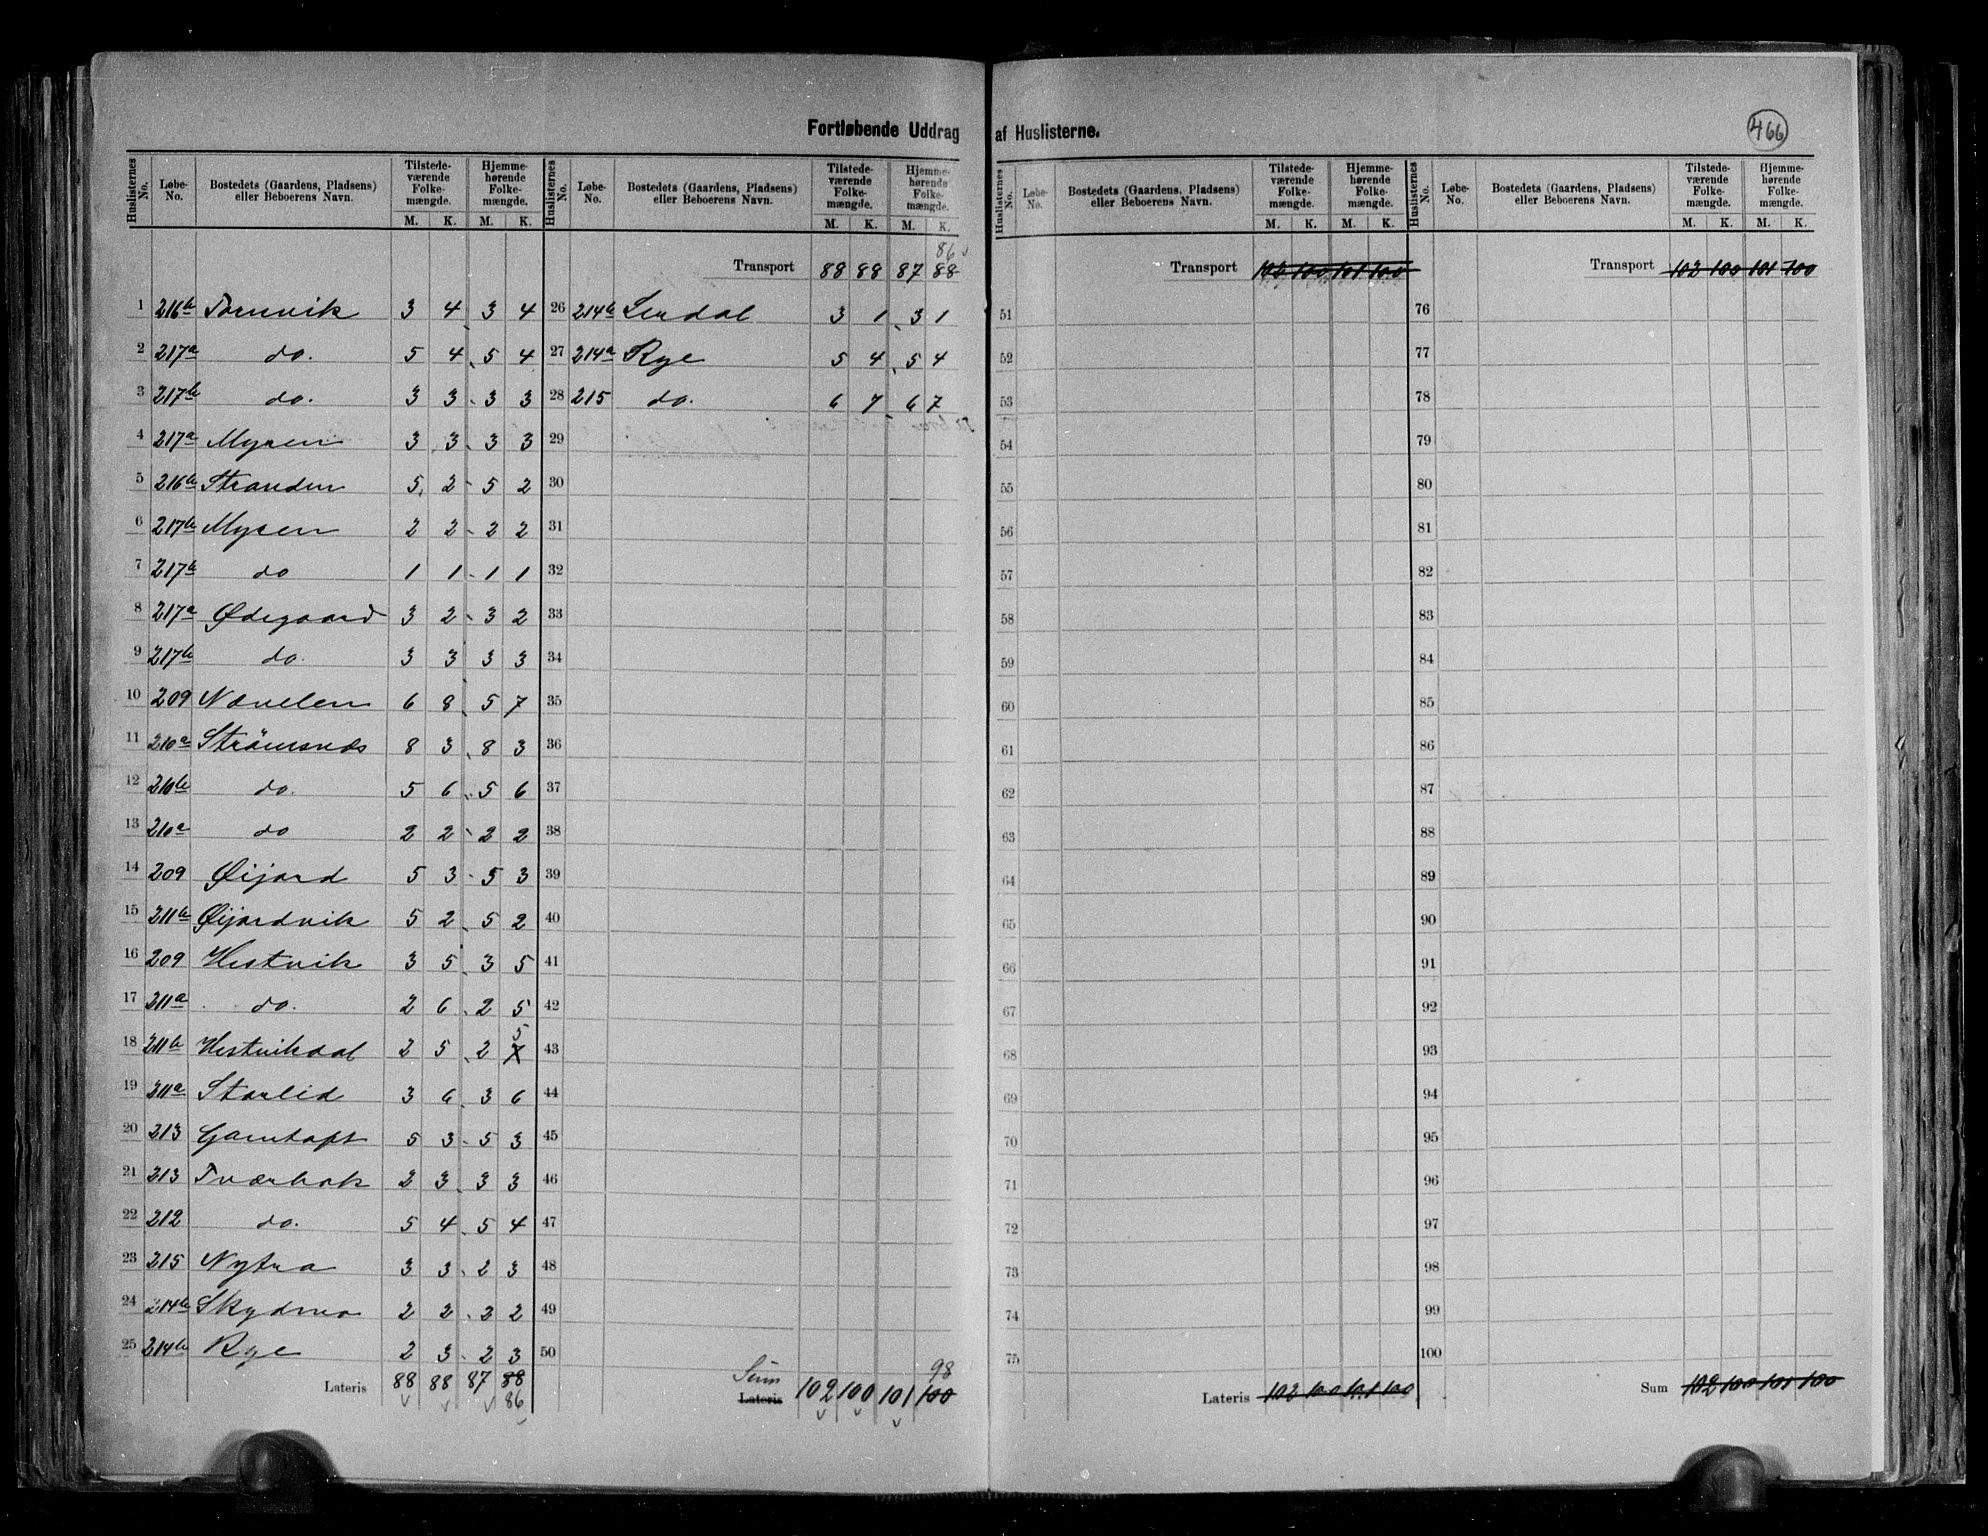 Fortløbende Uddrag af Huslisterne.
466
Huslisternes No. Løbe-No. Bostedets (Gaardens, Pladsens) eller Beboerens Navn. Tilstedeværende Folkemængde. M. K. Hjemmehørende Folkemængde. M. K.
1 216b Tornvik 3 4 3 4
2 217a do. 5 4 5 4
3 217b do. 3 3 3 3
4 217a Myren 3 3 3 3
5 216b Stranden 5 2 5 2
6 217b Myren 2 2 2 2
7 217b do 1 1 1 1
8 217a Ødegaard 3 2 3 2
9 217b do. 3 3 3 3
10 209 Nævelen 6 8 5 7
11 210a Strömsnes 8 3 8 3
12 210b do. 5 6 5 6
13 210a do 2 2 2 2
14 209 Øijord 5 3 5 3
15 211b Øijordvik 5 2 5 2
16 209 Hestvik 3 5 3 5
17 211a do. 2 6 2 5
18 211b Hestvikdal 2 5 2 5
19 211a Storlid 3 6 3 6
20 213 Gamtoft 5 3 5 3
21 213 Tværbak 2 3 3 3
22 212 do. 5 4 5 4
23 215 Nytra 3 3 2 3
24 214b Skydmo 2 2 2 2
25 214b Rye 2 3 2 3
Lateris 88 88 87 88
86
Huslisternes No. Løbe-No. Bostedets (Gaardens, Pladsens) eller Beboerens Navn. Tilstedeværende Folkemængde. M. K. Hjemmehørende Folkemængde. M. K.
86
Transport 88 88 87 88
26 214b Lerdal 3 1 3 1
27 214a Rye 5 4 5 4
28 215 do. 6 7 6 7
29
30
31
32
33
34
35
36
37
38
39
40
41
42
43
44
45
46
47
48
49
50
Sum 98
Lateris 102 100 101 100
Huslisternes No. Løbe-No. Bostedets (Gaardens, Pladsens) eller Beboerens Navn. Tilstedeværende Folkemængde. M. K. Hjemmehørende Folkemængde. M. K.
Transport 102 100 101 100
51
52
53
54
55
56
57
58
59
60
61
62
63
64
65
66
67
68
69
70
71
72
73
74
75
Lateris 102 100 101 100
Huslisternes No. Løbe-No. Bostedets (Gaardens, Pladsens) eller Beboerens Navn. Tilstedeværende Folkemængde. M. K. Hjemmehørende Folkemængde. M. K.
Transport 102 100 101 100
76
77
78
79
80
81
82
83
84
85
86
87
88
89
90
91
92
93
94
95
96
97
98
99
100
Sum 102 100 101 100